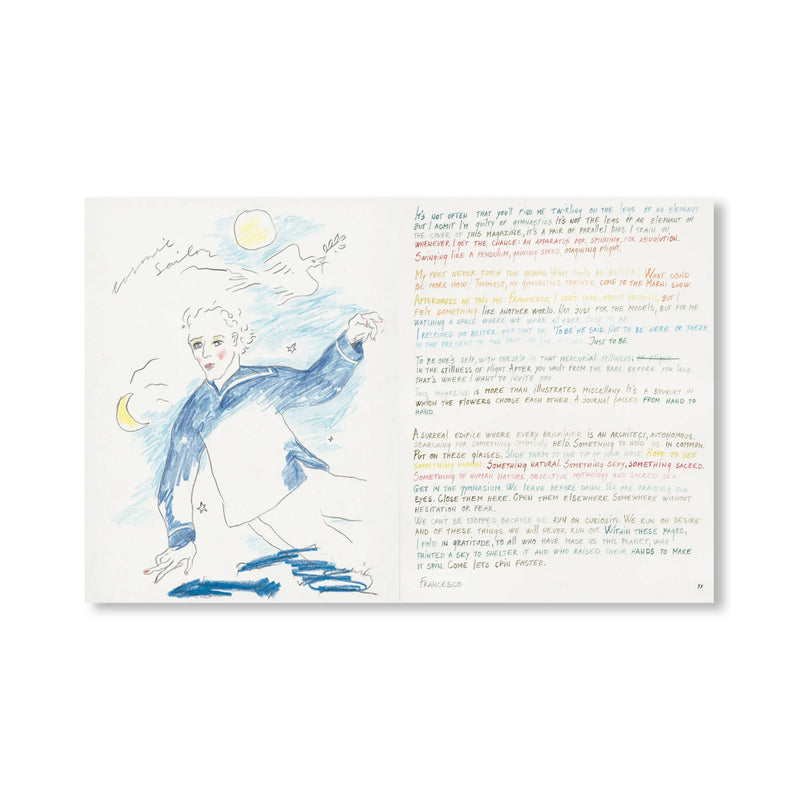 cosmic
sailor
It's not often that you'll find me twirling on the legs of an elephant
but I admit I'm guilty of gymnastics. It's not the legs of an elephant on
the cover of this magazine, it's a pair of parallel bars I train on
whenever I get the chance: an apparatus for spinning, for revolution.
Swinging like a pendulum, gaining speed, imagining flight.
My feet never touch the ground. What could be better? What could
be more now? Tommaso, my gymnastics teacher, come to the Marni show.
Afterwards he told me: Francesco, I don't care about fashion, but I
felt something. Like another world. Not just for the models, but for me
watching a space where we were all free. Just to be.
I received no better gift that day. To be he said. Not to be here or there,
in the present or the past or the future. Just to be.
To be one's self, with oneself in that mercurial stillness, of flight.
in the stillness of flight. After you vault from the bars, before you land
that's where I want to invite you.
This magazine is more than illustrated miscellany. It's a bouquet in
which the flowers choose each other. A journal passed from hand to
hand.
A surreal edifice where every bricklayer is an architect, autonomous,
searching for something commonly held. Something to hold us in common.
Put on these glasses. Slide them to the tip of your nose. Hope to see
something human. Something natural. Something sexy, something sacred.
Something of human nature, objective mythology and sacred sex.
Get in the gymnasium. We leave before dawn. We are training our
eyes. Close them here. Open them elsewhere. Somewhere without
hesitation or fear.
We can't be stopped, because we run on curiosity. We run on desire
and of these things we will never run out. Within these pages,
I fold in gratitude, to all who have made us this planet, who
painted a sky to shelter it and who raised their hands to make
it spin. Come lets spin faster.
Francesco